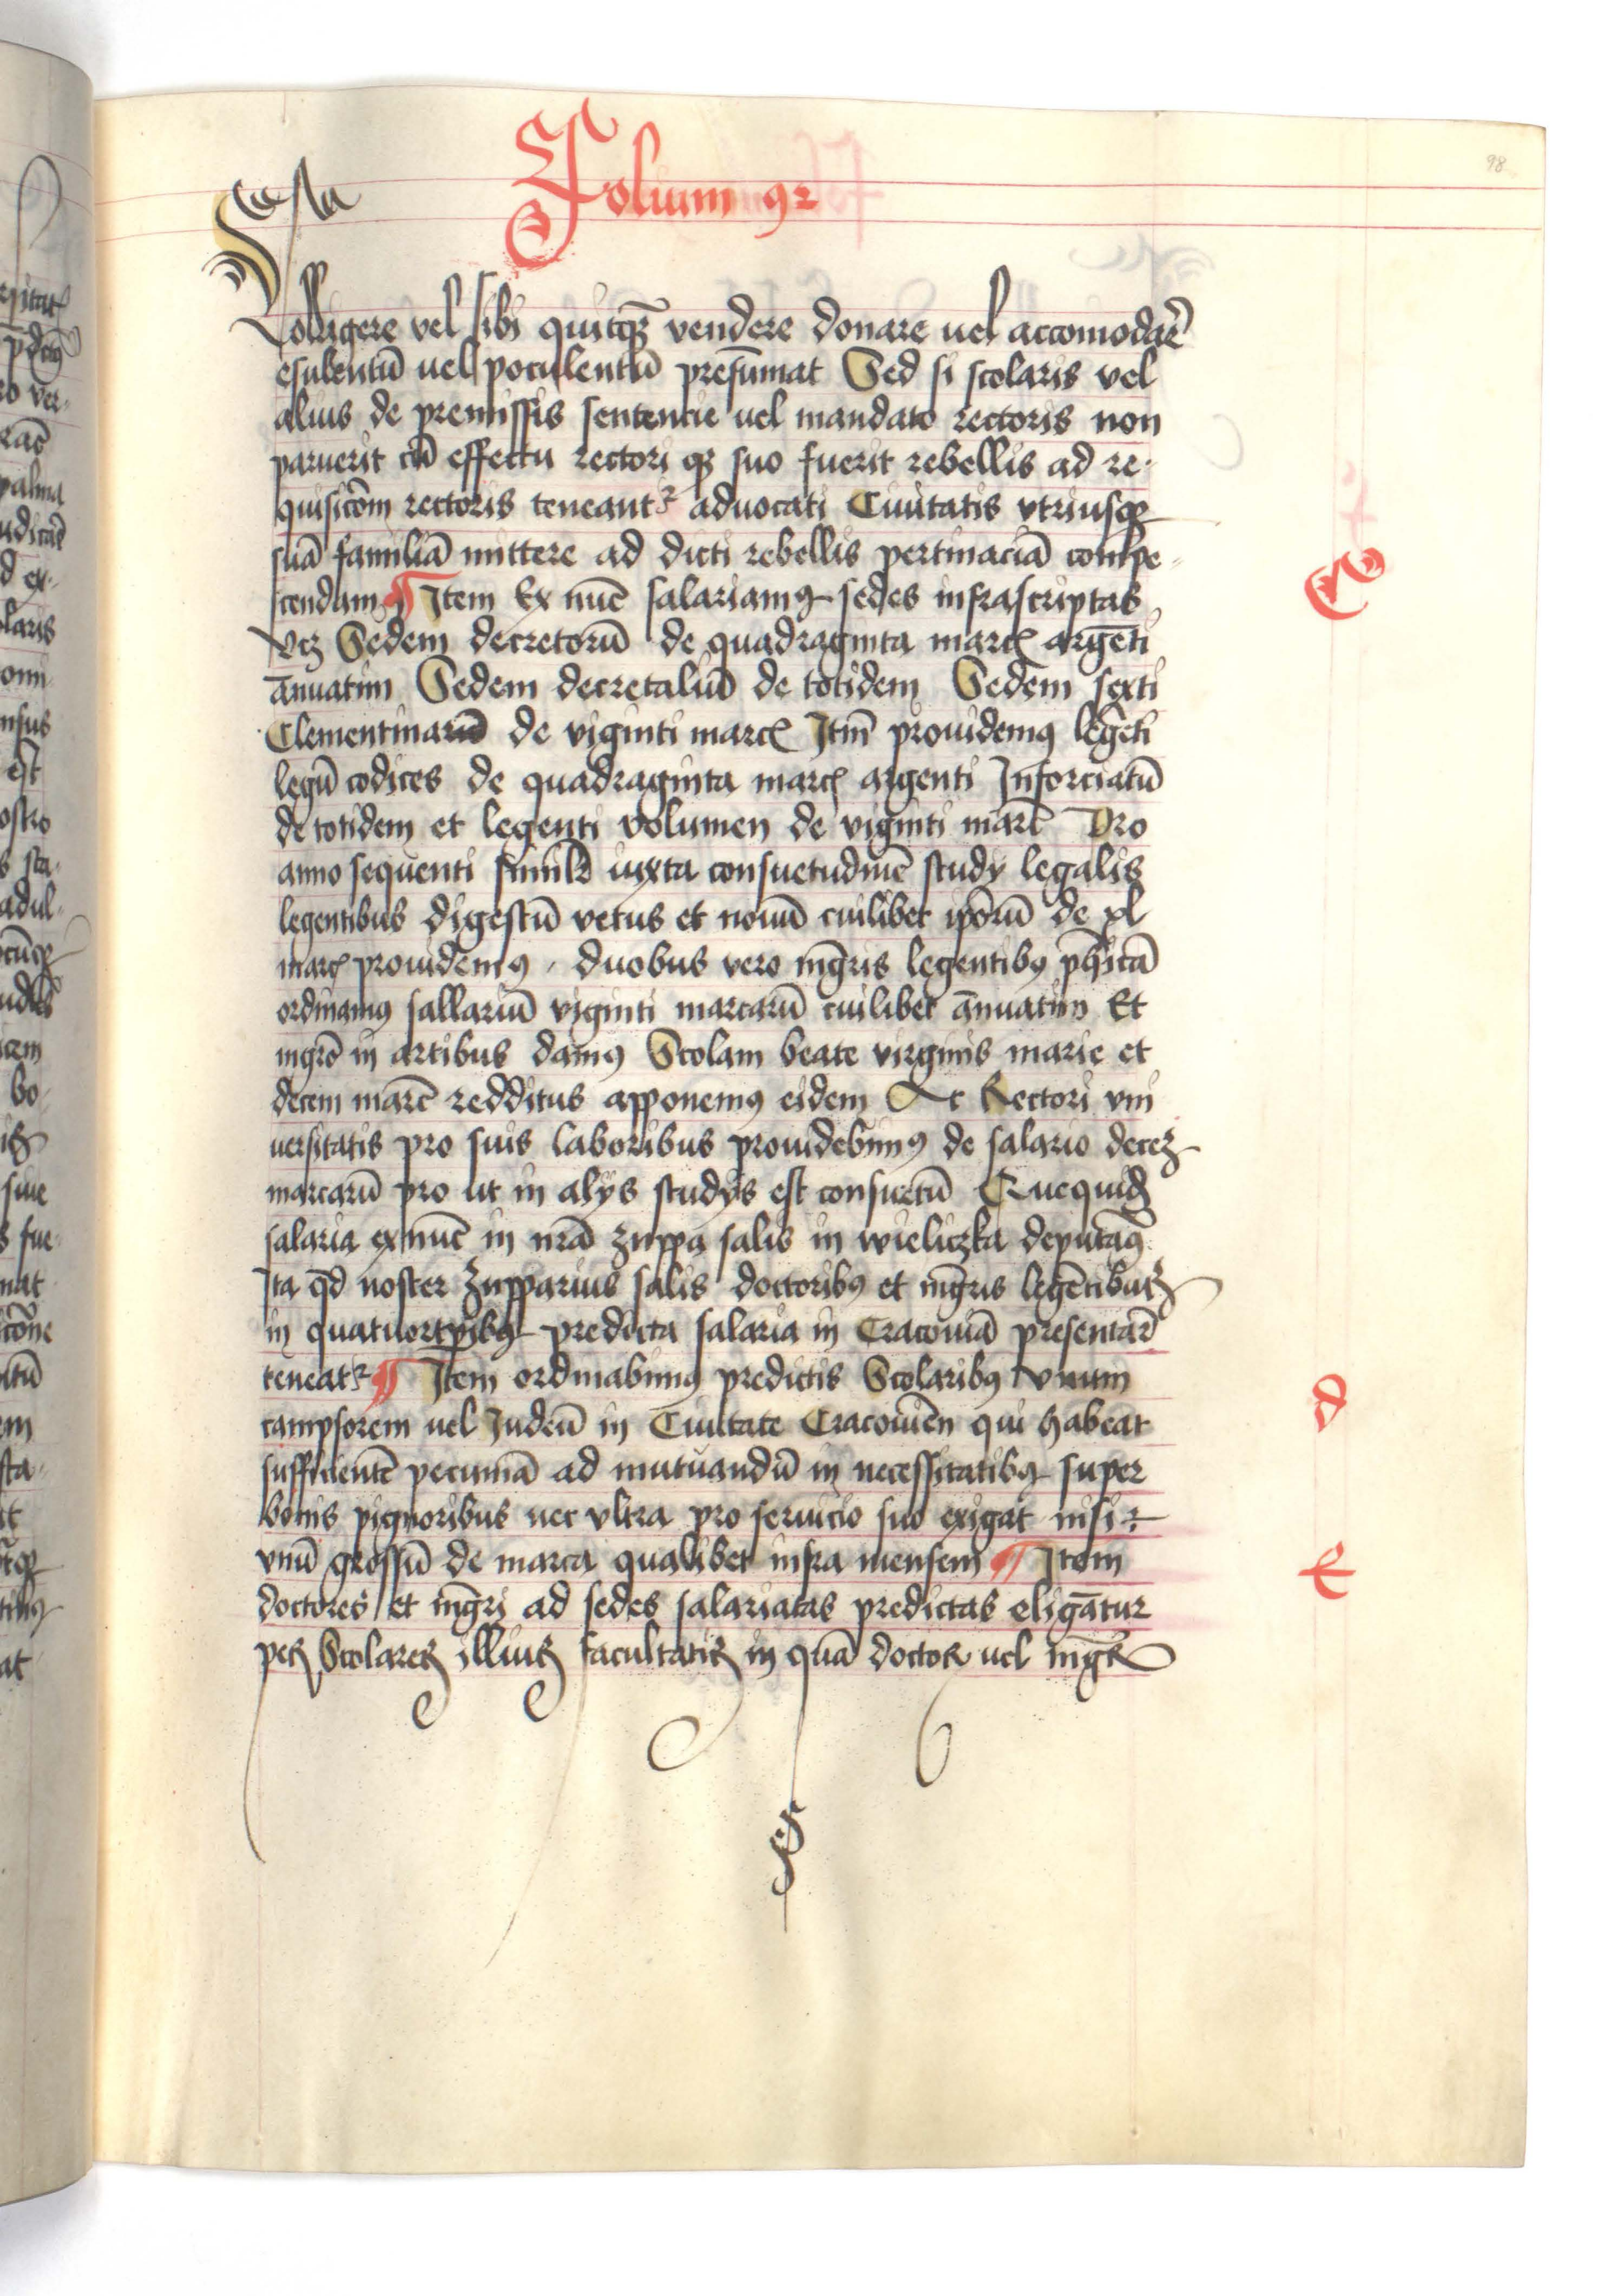 Folium 92
98
colligere vel sibi quitq̃ȝ vendere donare uel accomodar̃e
esulentũ uel poculentũ presũmat Sed si scolaris vel
alius de premissis sentencie uel mandato rectoris non
paruerit cũ effectu rectori qȝ suo fuerit rebellis ad re-
quisicõm rectoris teneantᵣ aduocati Ciuitatis vtriusqȝ
suã familiã mittere ad dicti rebellis pertinaciã compe-
scendam ¶ Item Ex nũc salariamꝰ sedes infrascriptas
vcȝ Sedem decretorũ de quadraginta marcꝭ argẽti
ãnuatim Sedem decretaliũ de totidem Sedem sexti
Clementinarũ de viginti marcꝭ Itm̃ prouidemꝰ legẽti
legũ codices de quadraginta marcꝭ argenti Inforciatũ
de totidem et legenti volumen de viginti marc̃ Pro
anno sequenti simili iuxta consuetudinẽ study legalis
legentibus digestũ vetus et nouũ cuilibet ipõrũ de xl
marcꝭ prouidemꝰ. duobus vero mg̃ris legentibꝰ phĩcã
ordinamꝰ sallariũ viginti marcarũ cuilibet ãnuatim Et
mgrõ in artibus damꝰ Scolam beate virginis marie et
decem marc̃ redditus apponemꝰ eidem Ac Rectori vni
uersitatis pro suis laboribus prouidebimꝰ de salario deceȝ
marcarũ pro ut in alys studys est consuetũ Quequid
salaria ex nũc in nrã zuppa salis in wieliczka deputamꝰ
Ita qd̃ noster Zupparius salis doctoribꝰ et mg̃ris legẽtibus
in quatuortp̃ibꝰ predicta salaria in Cracouiã presentar̃e
teneatᵣ ¶ Item ordinabimꝰ predictis Scolaribꝰ vnum
campsorem uel Iudeũ in Ciuitate Cracouieñ qui habeat
sufficientẽ pecuniã ad mutuandũ in necessitatibꝰ super
bonis pignoribus nec vltra pro seruicio suo exigat nisi
vnũ grossũ de marca qualibet infra mensem ¶ Item
doctores et mg̃ri ad sedes salariatas predictas eligãtur
per Scolares illius facultatis in quã doctor uel mgr̃
C
d
E